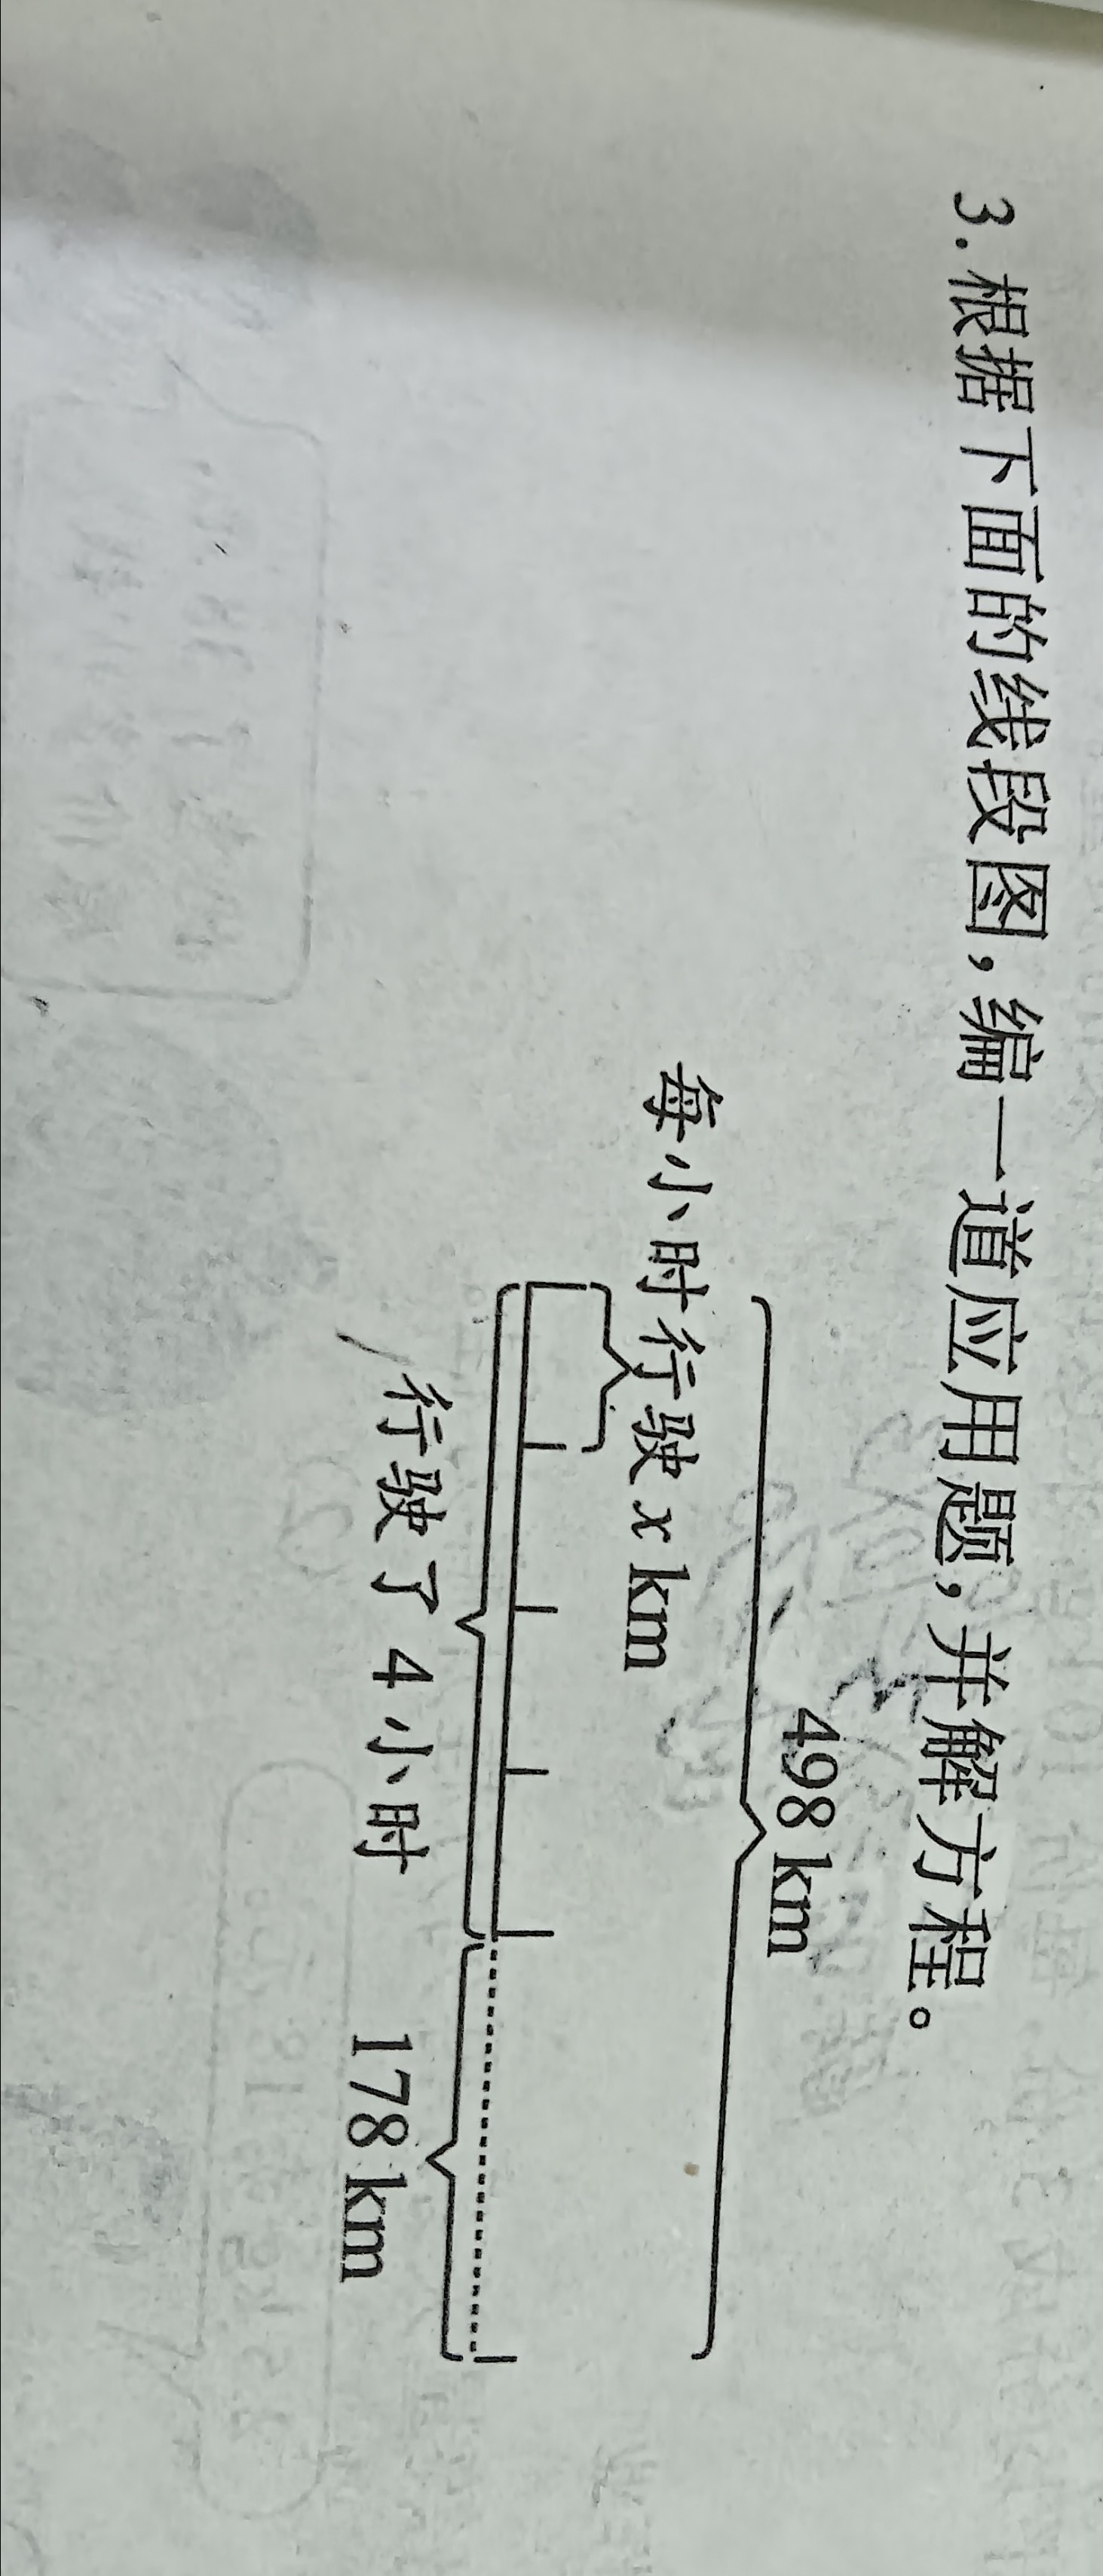 3.根据下面的线段图,编一道应用题,并解方程。
498 km
每小时行驶 x km
行驶了 4 小时
178 km